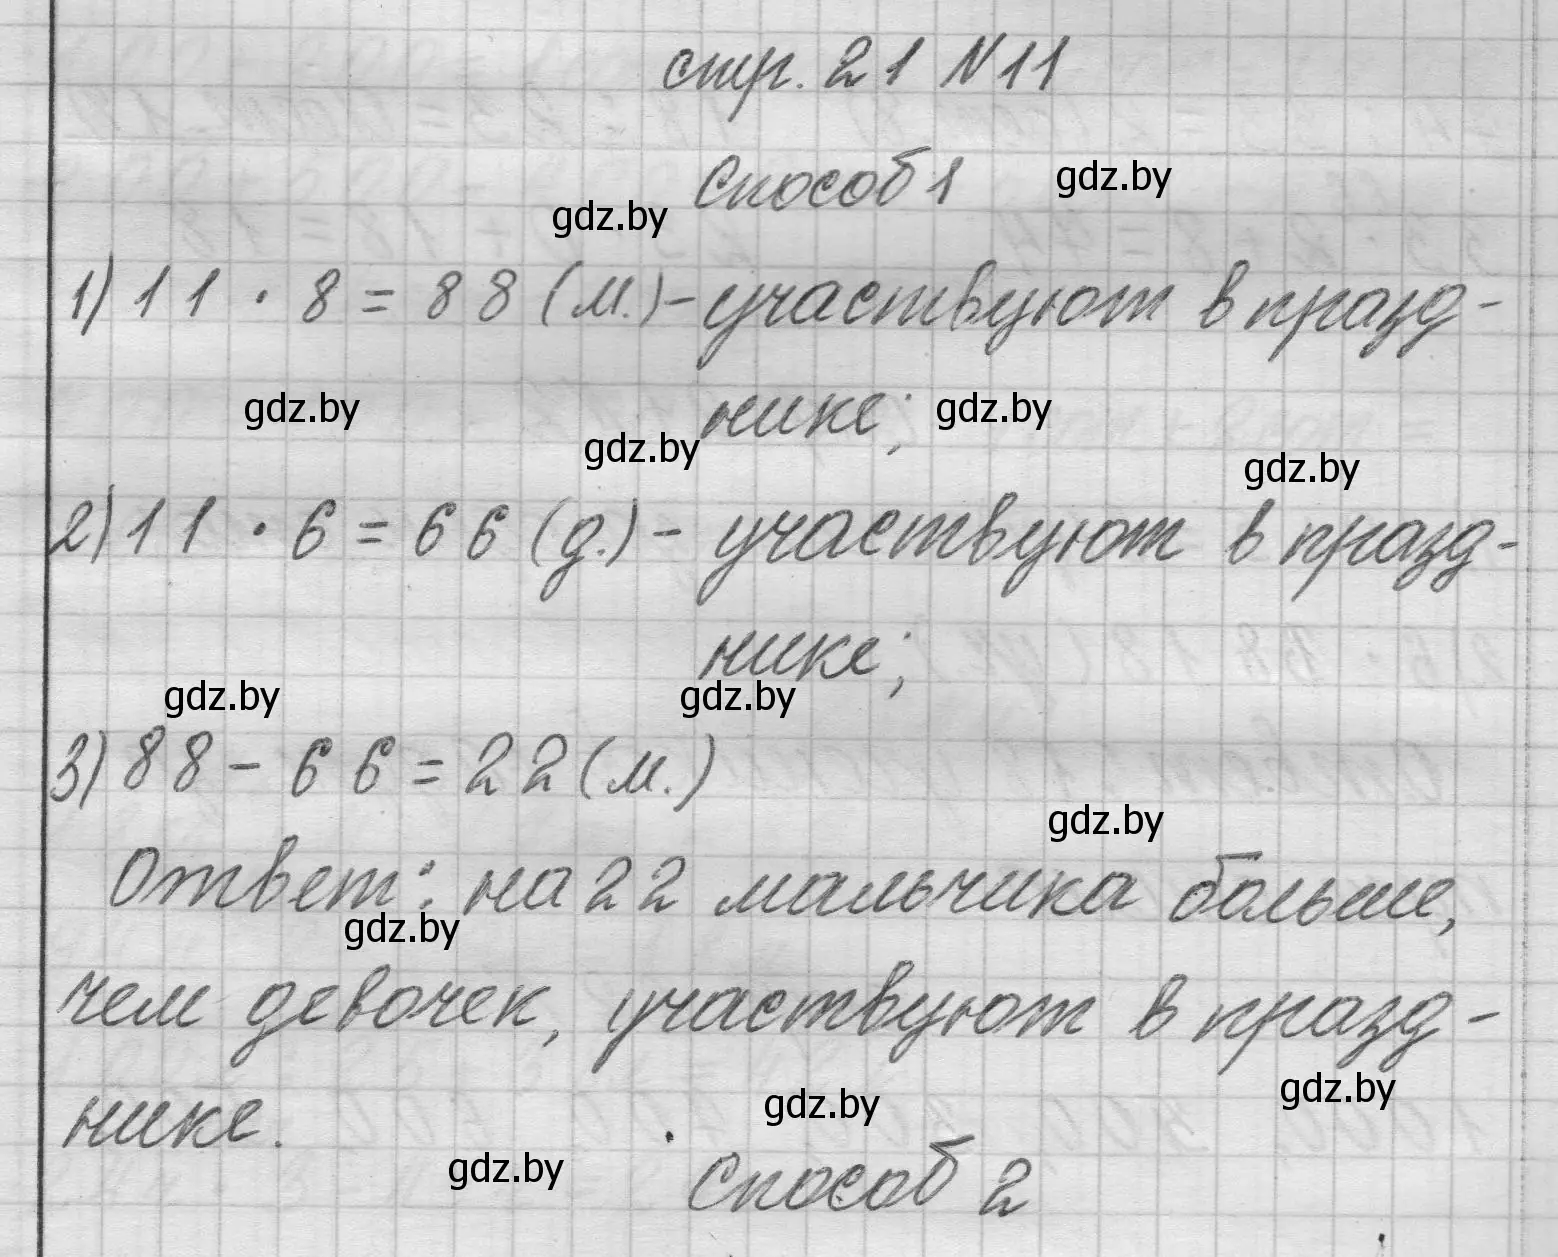 стр. 21 N11
Способ 1
gdz.by
gdz.by
1) 11 · 8 = 88 (м.) - участвуют в празд-
нике;
gdz.by
gdz.by
gdz.by
gdz.by
2) 11 · 6 = 66 (д.) - участвуют в празд-
нике;
gdz.by
gdz.by
3) 88 - 66 = 22 (м.)
gdz.by
Ответ: на 22 мальчика больше,
gdz.by
чем девочек, участвуют в празд-
нике.
gdz.by
gdz.by
gdz.by
Способ 2